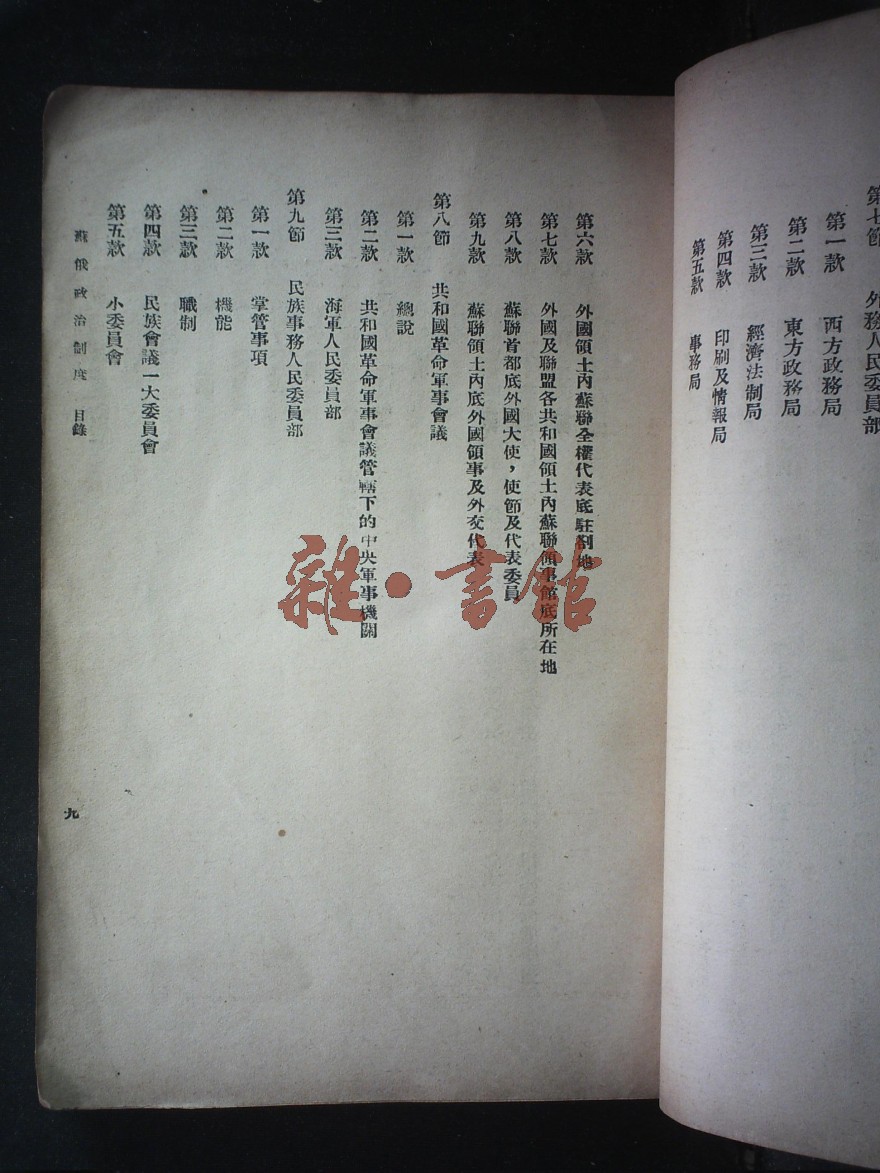 第七節　外務人民委員部
第一款　西方政務局
第二款　東方政務局
第三款　經濟法制局
第四款　印刷及情報局
第五款　事務局
第六款　外國領土內蘇聯全權代表底駐劄地
第七款　外國及聯盟各共和國領土內蘇聯領事館底所在地
第八款　蘇聯首都底外國大使，使節及代表委員
第九款　蘇聯領土內底外國領事及外交代表
第八節　共和國革命軍事會議
第一款　總說
第二款　共和國革命軍事會議管轄下的中央軍事機關
第三款　海軍人民委員部
第九節　民族事務人民委員部
第一款　掌管事項
第二款　機能
第三款　職制
第四款　民族會議一大委員會
第五款　小委員會
蘇俄政治制度　目錄
九
雜·書館